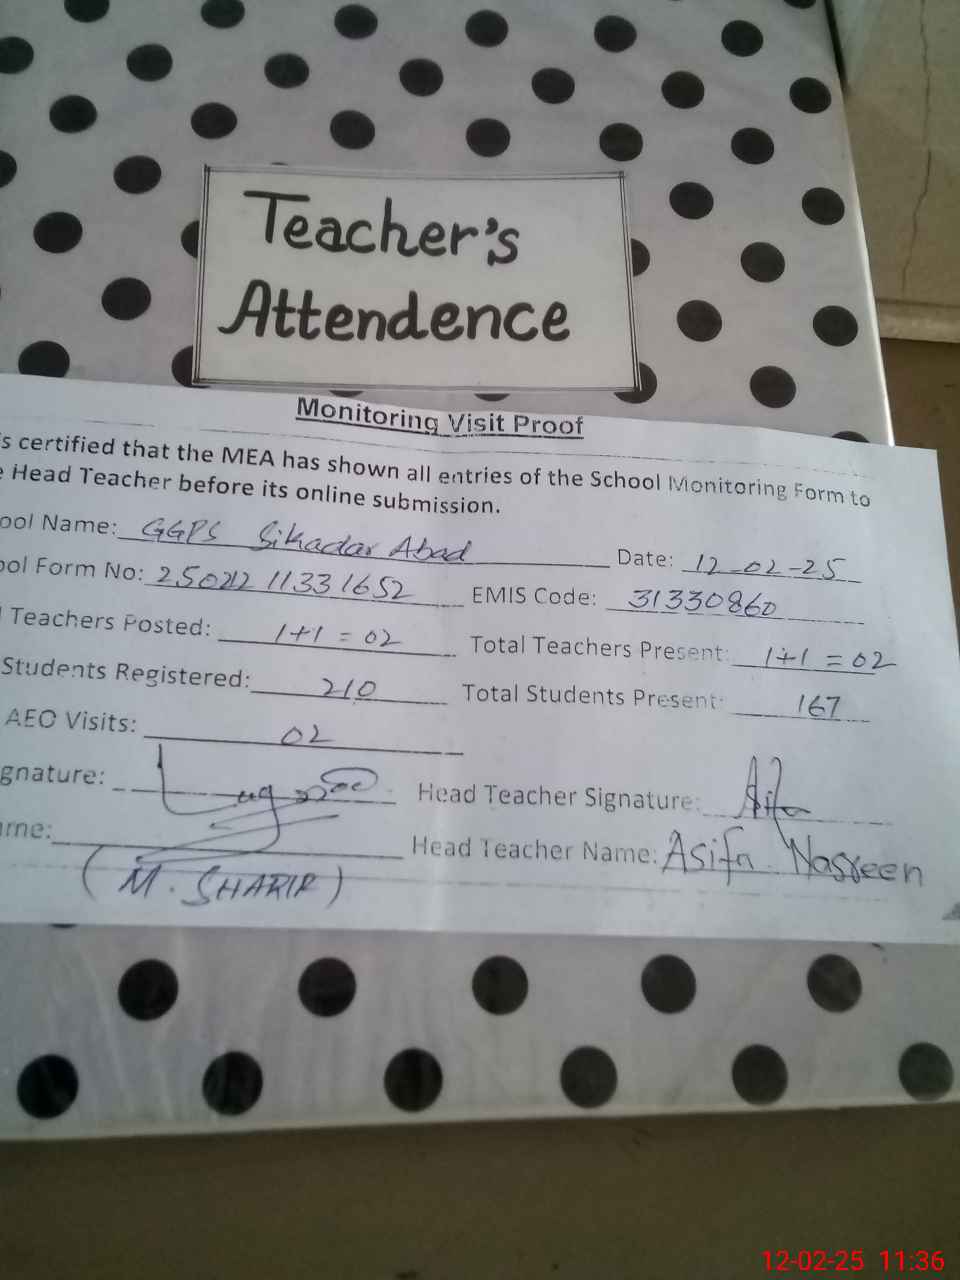 Teacher's
Attendence
Monitoring Visit Proof
is certified that the MEA has shown all entries of the School Monitoring Form to
e Head Teacher before its online submission.
ool Name: GGPS Sikadar Abad Date: 12-02-25
ool Form No: EMIS Code: 31330860
l Teachers Posted: 1+1 = 02 Total Teachers Present: 1+1 = 02
Students Registered: 210 Total Students Present: 167
AEO Visits: 02
gnature: Head Teacher Signature: Asifa
ame: Head Teacher Name: Asifa Nasreen
(M. SHARIF)
12-02-25 11:36